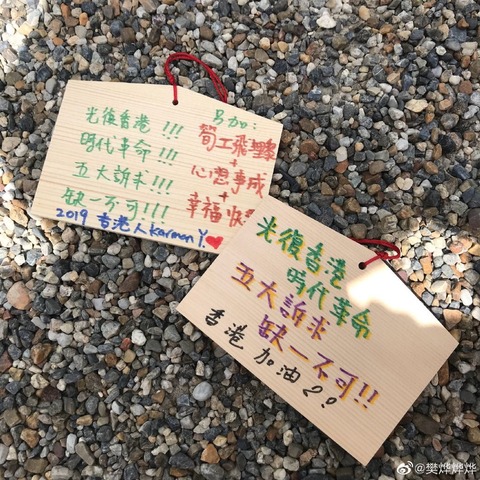 光復香港!!!
時代革命!!!
五大訴求!!!
缺一不可!!!
另加:
荀工飛黎
+
心想事成
+
幸福快
2019 香港人 Karmen Y.
光復香港
時代革命
五大訴求
缺一不可!!
香港加油
@樊烨烨烨